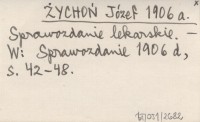 ŻYCHOŃ Józef 1906 a.
Sprawozdanie lekarskie. —
W: Sprawozdanie 1906 d,
s. 42-48.